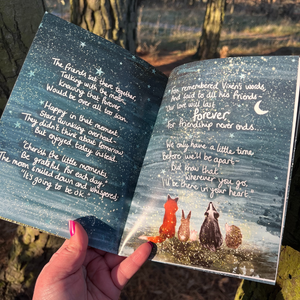 The friends sat there together,
Talking with the moon,
Knowing that this forever
Would be over all too soon.
Happy in that moment,
Stars twinkling overhead,
They didn't think about tomorrow
But enjoyed today instead.
"Cherish the little moments,
Be grateful for each day,"
The moon knelt down and whispered,
"It's going to be ok."
remembered Vixen's words,
And said to all his friends
"Our love will last
Forever,
For friendship never ends.
We only have a little time
Before we'll be apart
But know that
Wherever you go,
I'll be there in your heart."